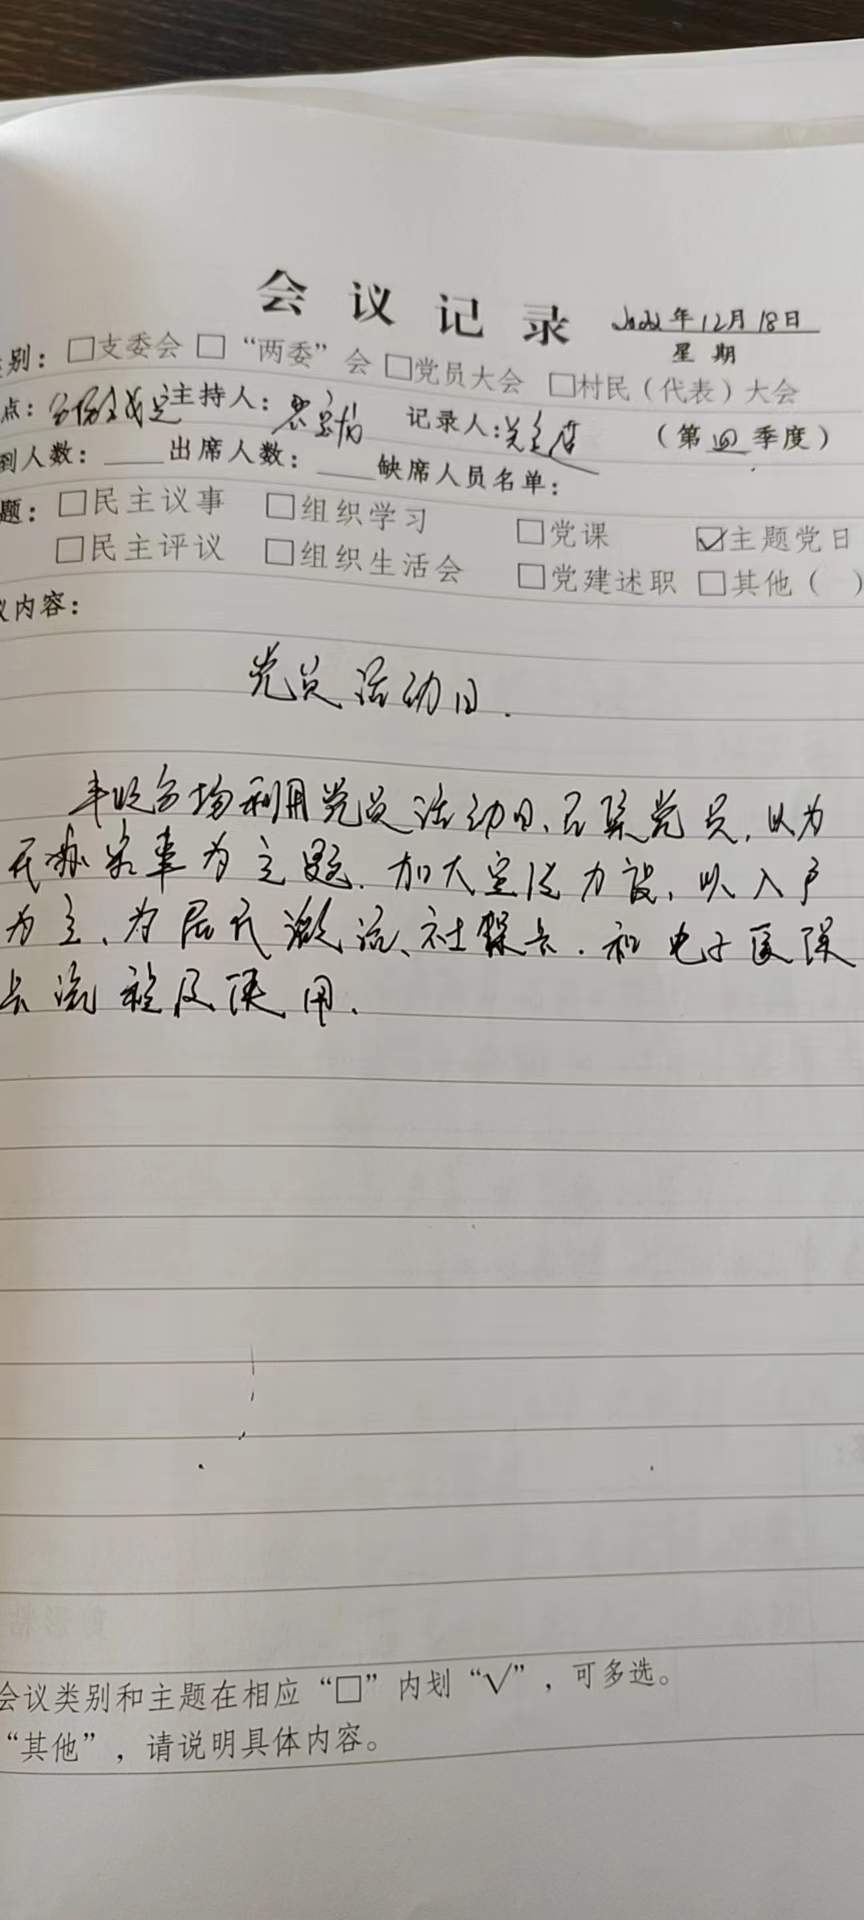 会议记录 2022年12月18日
星期
别：□支委会 □“两委”会 □党员大会 □村民（代表）大会
点： 主持人： 记录人： （第四季度）
到人数： 出席人数： 缺席人员名单：
题：□民主议事 □组织学习 □党课 ☑主题党日
□民主评议 □组织生活会 □党建述职 □其他（ ）
议内容：
党员活动日.
丰收分场利用党员活动日、召集党员，以为
民办实事为主题.加大宣传力度，以入户
为主、为居民激活、社保卡.和电子医保
卡流程及使用.
会议类别和主题在相应“□”内划“√”，可多选。
“其他”，请说明具体内容。